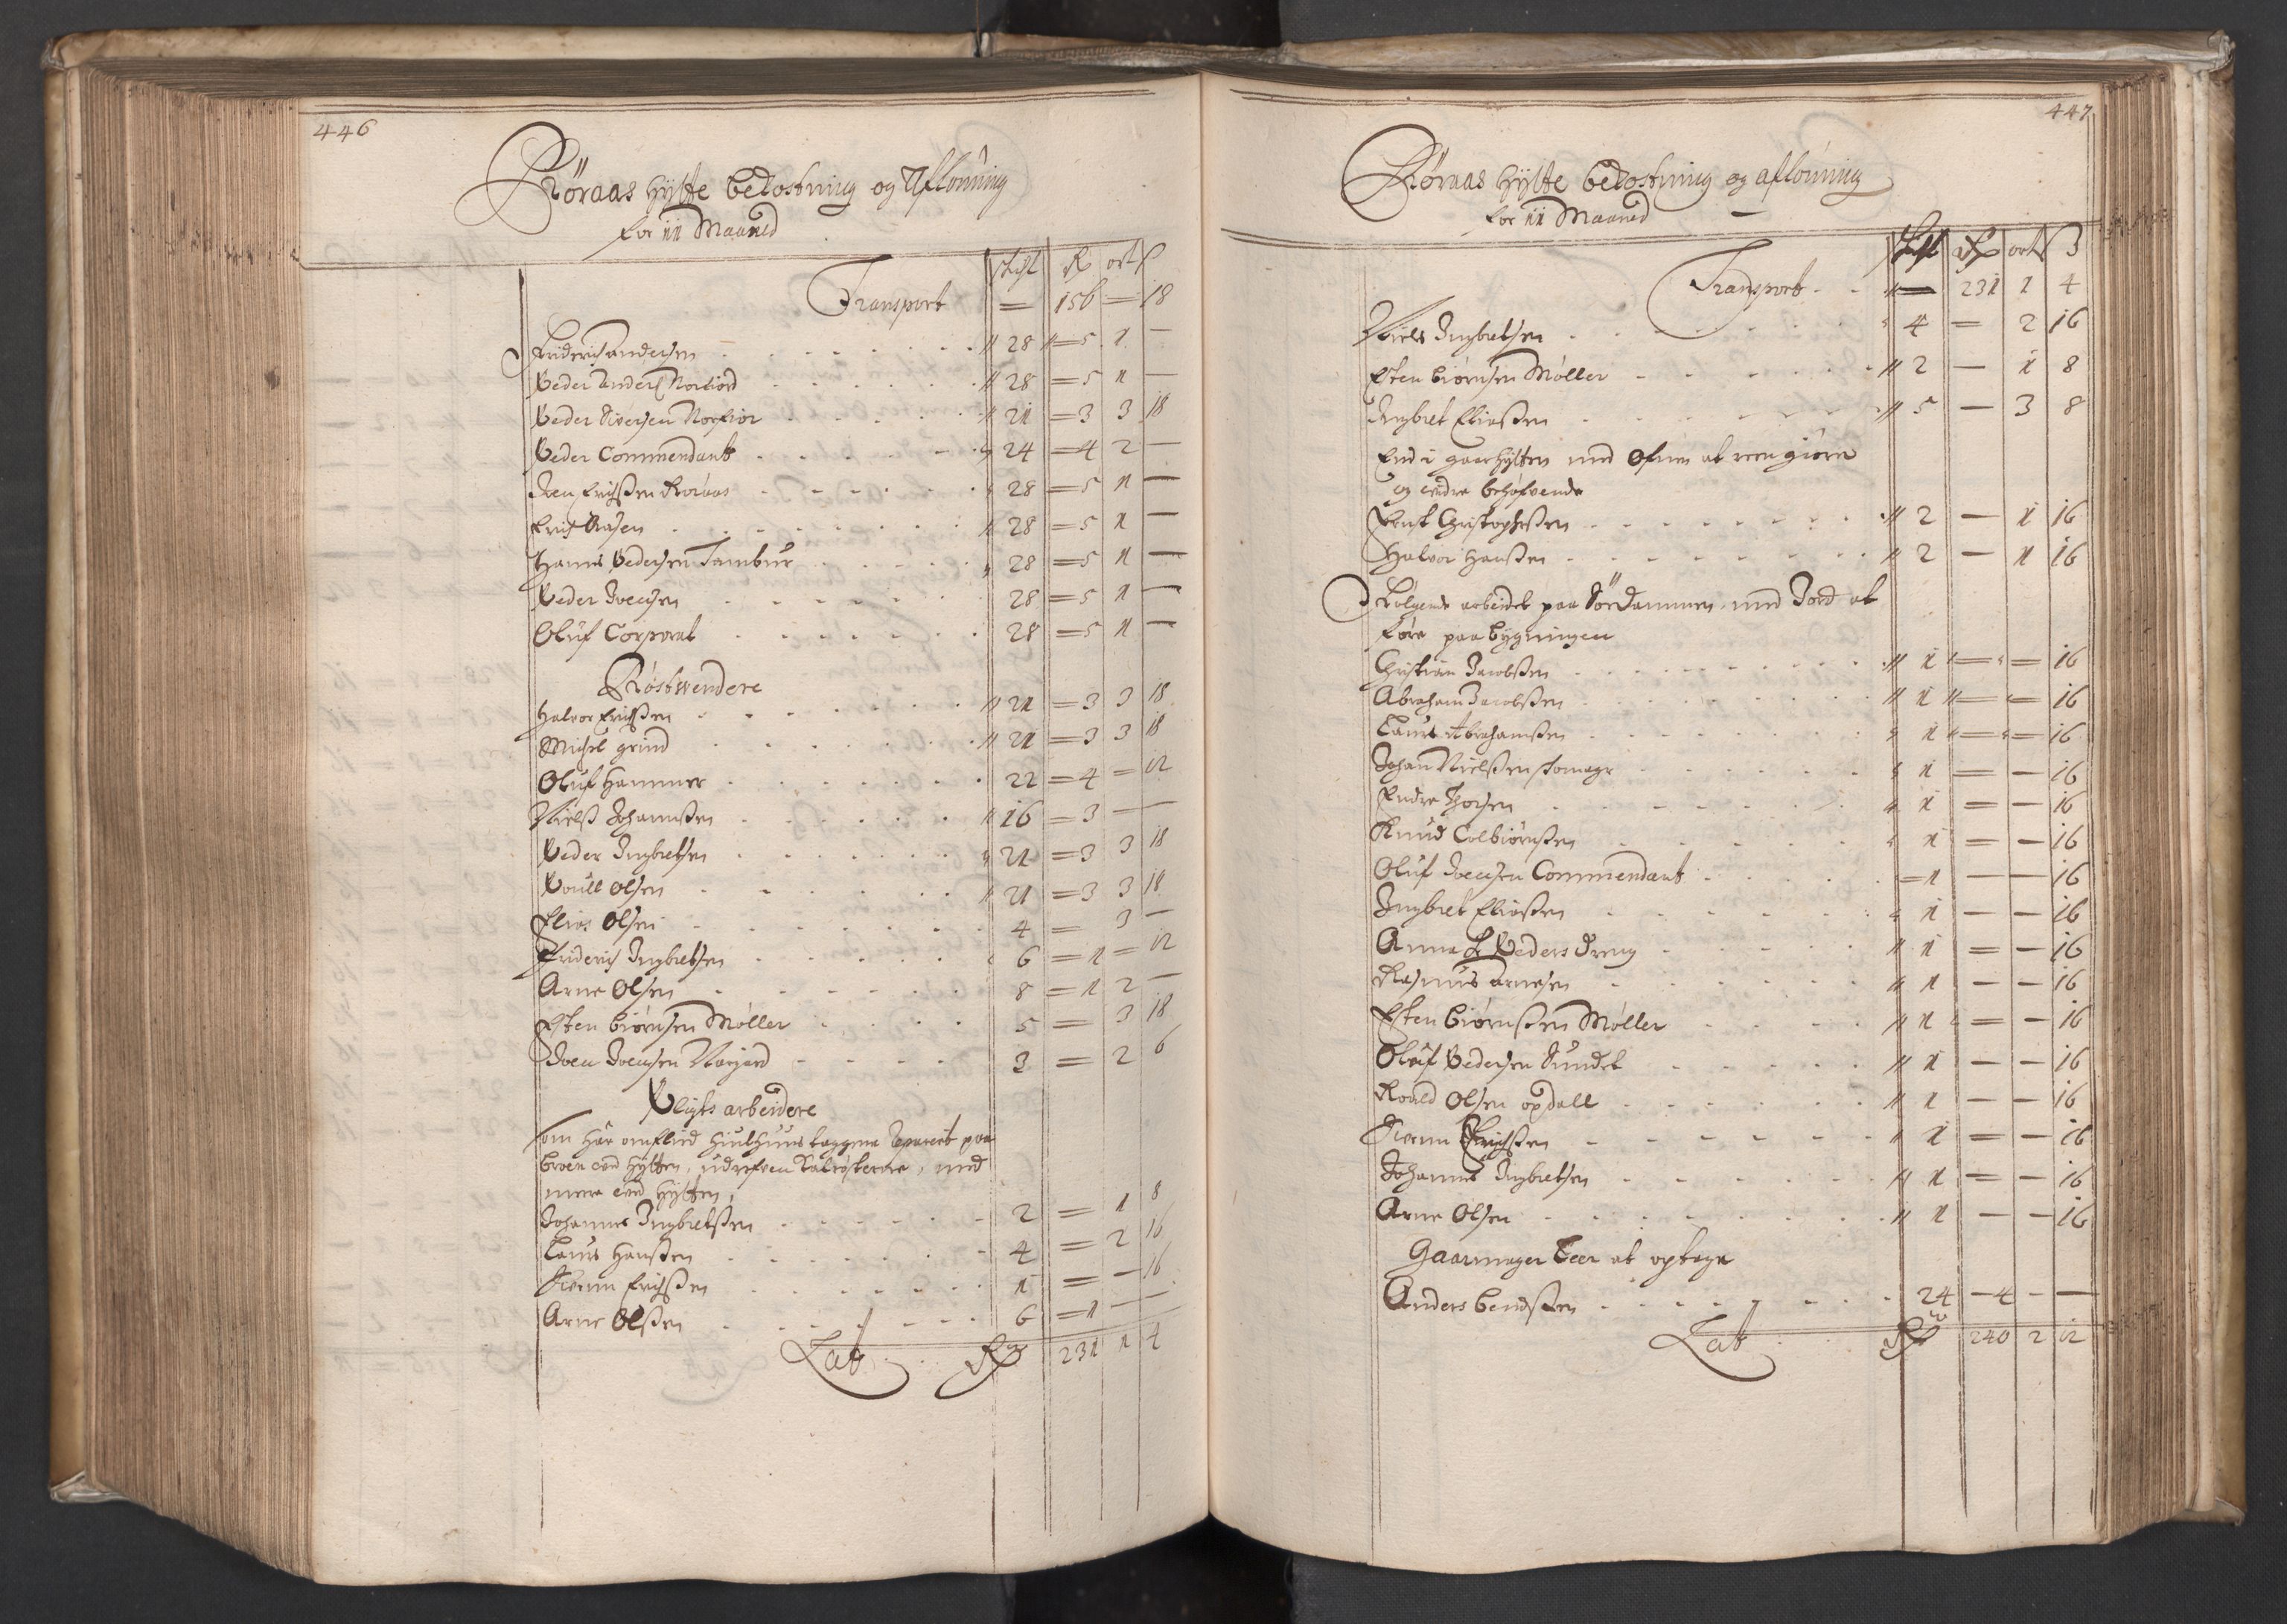 446
Röraas Hytte bekostning og Aflönning
for 11 Maaned
skift R ort ß
Transport = 156 = 18
Friderich andersen 28 = 5 1 —
Peder anders Norfiord 28 = 5 1 —
Peder Siversen Norfior 21 = 3 3 18
Peder Commendant 24 = 4 2 —
Joen Erichssen Röraas 28 = 5 1 —
Erich Aasen 28 = 5 1 —
Hanns Pedersen Tambur 28 = 5 1 —
Peder Joensen 28 = 5 1 —
Oluf Corporal 28 = 5 1 —
Röstwendere
Halvor Erichssen 21 = 3 3 18
Michel grind 21 = 3 3 18
Oluf Hammer 22 = 4 = 12
Nielss Johanssen 16 = 3 — —
Peder Ingbretsen 21 = 3 3 18
Poull Olsen 21 = 3 3 18
Elias Olsen 4 = 3 —
Friderich Ingbretsen 6 = 1 = 12
Arne Olsen 8 = 1 2 —
Esten biörnsen Möller 5 = 3 18
Joen Joensen 3 = 2 6
Pligts arbeidere
som har omflied Hiulhuus paa
broen ved Hytten, med
mere ved Hytten,
Johannes Ingbretssen 2 = 1 8
Laurs Hanssen 4 = 2 16
Svenn Erichssen 1 = — 16
Arne Olssen 6 = 1 — —
Lat R 231 1 4
447
Röraas Hytte bekostning og aflönning
for 11 Maaned —
Skift R ort ß
Transport — 231 1 4
Niels Ingbretsen 4 = 2 16
Esten Biörnsen Möller 2 — 1 8
Ingbret Eliassen 5 — 3 8
End i gaarhytten med Ofnen at reengiöre
og andre behöfvende
Bent Christophessen 2 — 1 16
Halvor Hanssen 2 — 1 16
Fölgende arbeidet paa Sördammen med Jord at
före paa bygningen
Christian Jacobssen 1 = = 16
Abraham Jacobssen 1 = = 16
Laurs Abrahamssen 1 = = 16
Johan Nielssen 1 = — 16
Endre Thorsen 1 = — 16
Knud Colbiörnssen 1 = — 16
Oluf Joensen Commendant = 1 — — 16
Ingbret Eliassen 1 — — 16
Anne Peders dreng 1 = — 16
Rasmus arnesen 1 — — 16
Esten Biörnssen Möller 1 = — 16
Oluf Pedersen Sundet 1 — — 16
Roald Olsen opdall 1 — — 16
Svenn Erichssen 1 = — 16
Johannes Ingbretsen 1 = — 16
Arne Olsen 1 — — 16
Gaarmager Leer at optage
Anders bendssen 24 — 4 — —
Lat R 240 2 12